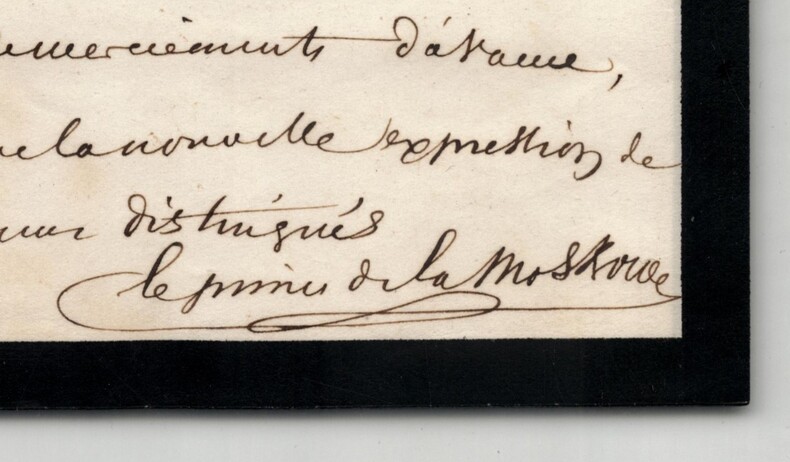 remerciements d'avance,
de la nouvelle expression de
distingués
le prince de la Moskowa